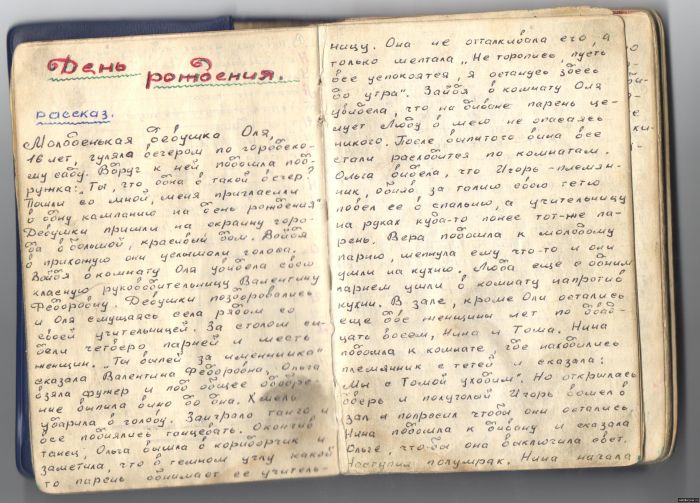 День
рождения.
рассказ.
Молоденькая девушка Оля,
16 лет, гуляла вечером по городско-
му саду. Вдруг к ней подошла под-
ружка: „Ты, что одна в такой вечер?
Пошли со мной, меня пригласили
в одну кампанию на день рождения"
Девушки пришли на окраину горо-
да в большой, красивый дом. Войдя
в прихожую они услышали голоса.
Войдя в комнату Оля увидела свою
класную руководительницу Валентину
Федоровну. Девушки поздоровались
и Оля смущаясь села рядом со
своей учительницей. За столом си-
дели четверо парней и шесть
женщин. „Ты выпей за именинника"
сказала Валентина Федоровна, Ольга
взяла фужер и под общее одобре-
ние выпила вино до дна. Хмель
ударила в голову. Заиграло танго и
все поднялись танцевать. Окончив
танец, Ольга вышла в коридорчик и
заметила, что в темном углу какой
то парень обнимает ее учитель-
ницу. Она не отталкивала его, а
только шептала „Не торопись, пусть
все успокоятся, я останусь здесь
до утра". Зайдя в комнату Оля
увидела, что на диване парень це-
лует Любу в шею не опасаясь
никого. После выпитого вина все
стали расходится по комнатам.
Ольга видела, что Игорь - племян-
ник, обняв за талию свою тетю
повел ее в спальню, а учительницу
на руках куда-то понес тот-же па-
рень. Вера подошла к молодому
парню, шепнула ему что-то и они
ушли на кухню. Люба еще с одним
парнем ушли в комнату напротив
кухни. В зале, кроме Оли остались
еще две женщины лет по двад-
цать восем, Нина и Тома. Нина
подошла к комнате где находились
племянник с тетей и сказала:
Мы с Томой уходим". Но открылась
дверь и полуголой Игорь вошел в
зал и попросил чтобы они остались.
Нина подошла к дивану и сказала
Ольге, что-бы она выключила свет.
Наступил полумрак. Нина начала